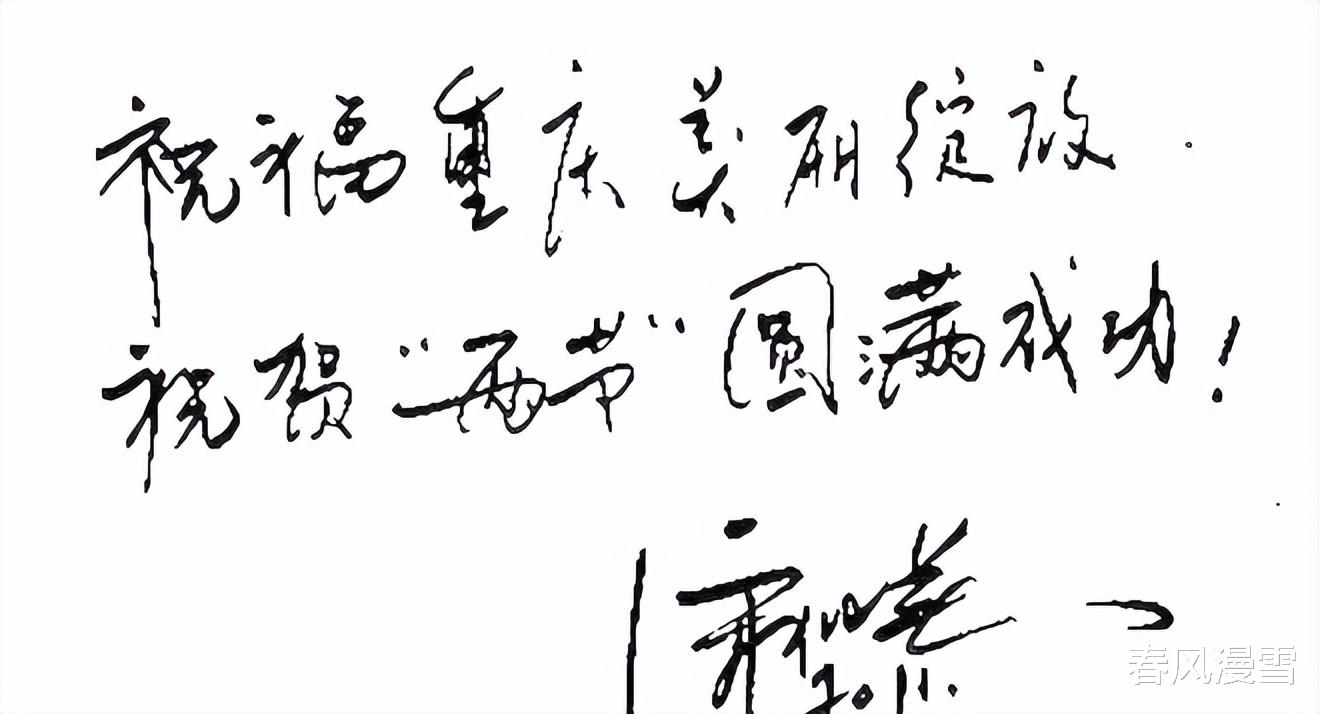 祝福重庆美丽绽放.
祝贺“两节”圆满成功!
2011.
春风漫雪